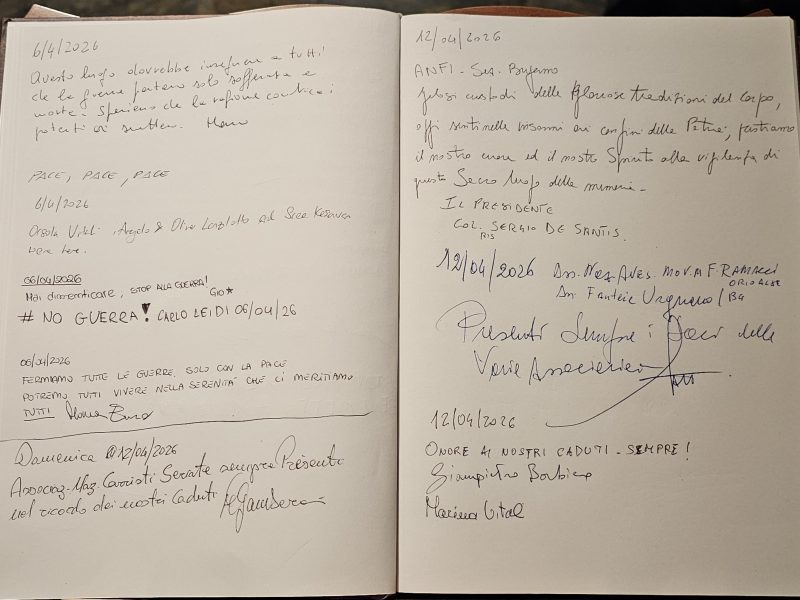 6/4/2026
Questo luogo dovrebbe insegnare a tutti
che la guerra portano solo sofferenza e
morte. Speriamo che la ragione contro i
potenti
PACE, PACE, PACE
6/4/2026
Orsola Vitali, Angelo &
were here.
06/04/2026
Mai dimenticare, STOP ALLA GUERRA!
Gio★
# NO GUERRA! CARLO LEIDI 06/04/26
06/04/2026
FERMIAMO TUTTE LE GUERRE, SOLO CON LA PACE
POTREMO TUTTI VIVERE NELLA SERENITA' CHE CI MERITIAMO
TUTTI
Domenica 12/04/2026
Associaz. Naz. Carristi Seriate sempre Presente
nel ricordo dei nostri Caduti
12/04/2026
ANFI - Sez. Bergamo
gelosi custodi delle Gloriose tradizioni del Corpo,
oggi sentinelle insonni ai confini della Patria, prestiamo
il nostro cuore ed il nostro Spirito alla vigilanza di
questo Sacro luogo della memoria -
IL PRESIDENTE
COL. SERGIO DE SANTIS.
RIS
12/04/2026 Ass. Naz. AVES. MOV. M F. RAMACCI
ORIO AL SE
Ass. Fanteria Urgnano / BG
Presenti Sempre i Soci delle
Varie Associazioni
12/04/2026
ONORE AI NOSTRI CADUTI - SEMPRE!
Giampietro
Marina Vitali